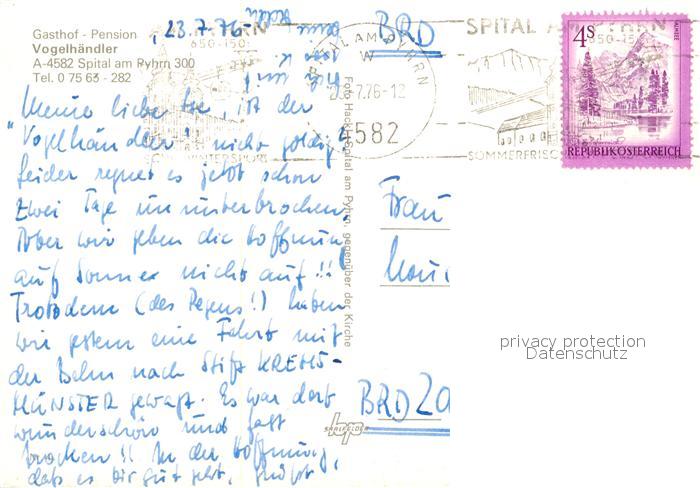 Gasthof - Pension
Vogelhändler
A-4582 Spital am Pyhrn 300
Tel. 0 75 63 - 282
, 23.7.76
Meine liebe , ist der
"Vogelhändler" nicht goldig?
Leider regnet es jetzt schon
zwei Tage ununterbrochen.
Aber wir geben die Hoffnung
auf Sonne nicht auf!!
Trotzdem (des Regens!) haben
wir gestern eine Fahrt mit
der Bahn nach Stift KREMS-
MÜNSTER gewagt. Es war dort
wunderschön und fast
trocken!! In der Hoffnung,
daß es Dir gut geht, grüßt
Foto Hack, Spital am Pyhrn, gegenüber der Kirche
SPITAL AM PYHRN
W
23.-7.76-12
4582
SPITAL AM PYHRN
650-1501
SOMMERFRISCHE
4S
REPUBLIK ÖSTERREICH
BRD
Frau
BRD
privacy protection
Datenschutz